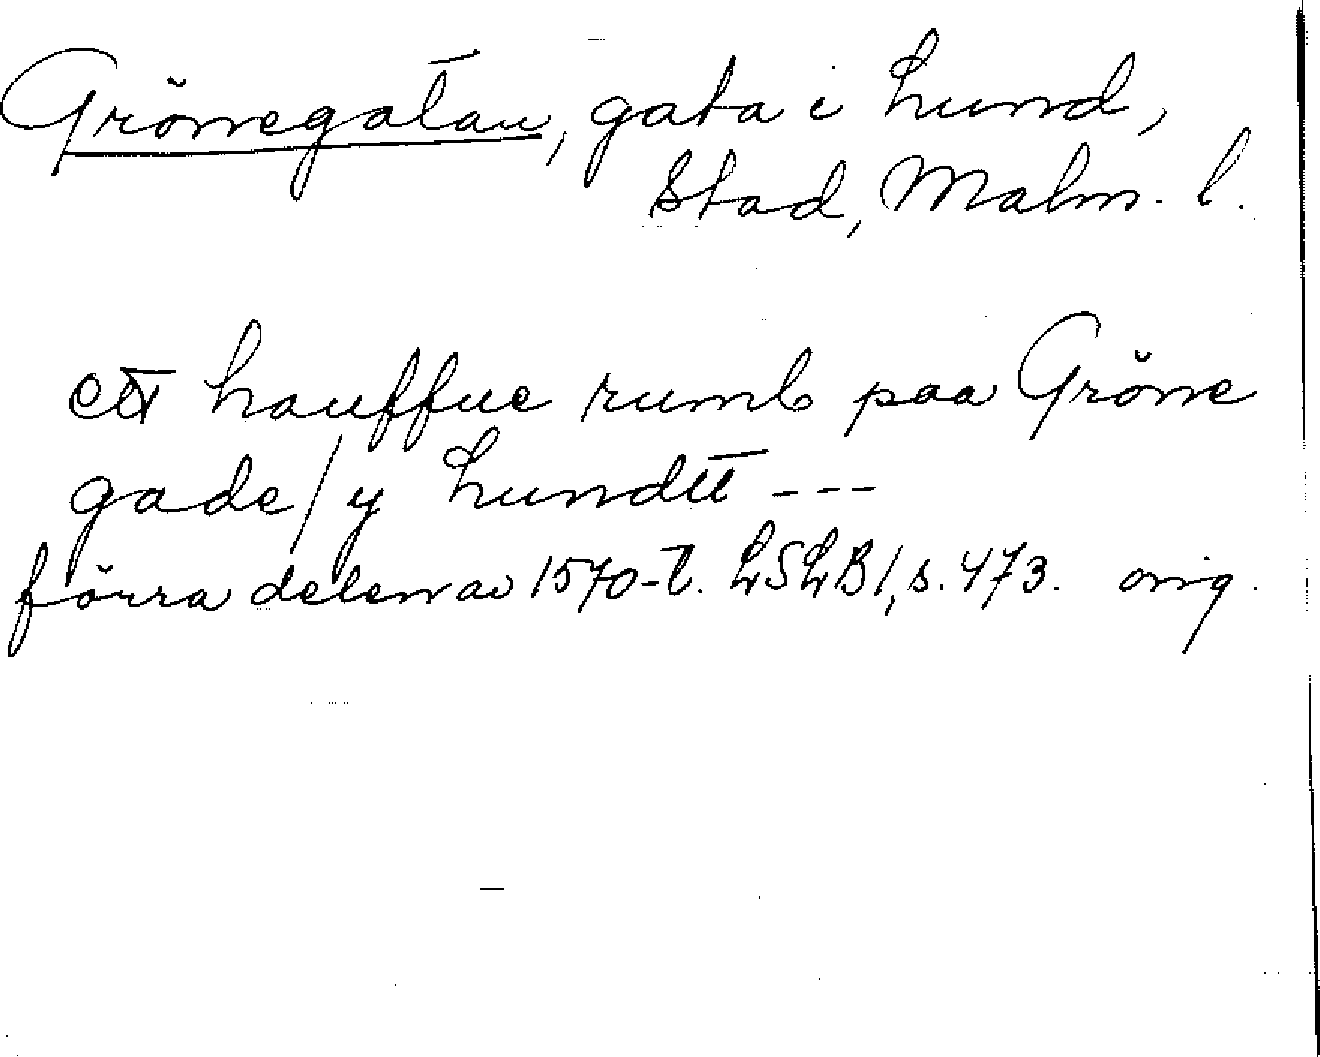 Grönegatan, gata i Lund,
stad, Malm. l.
ett hauffue rumb paa Gröne
gade / y Lundtt ---
förra delen av 1570-t. LSLB 1, s. 473. orig.